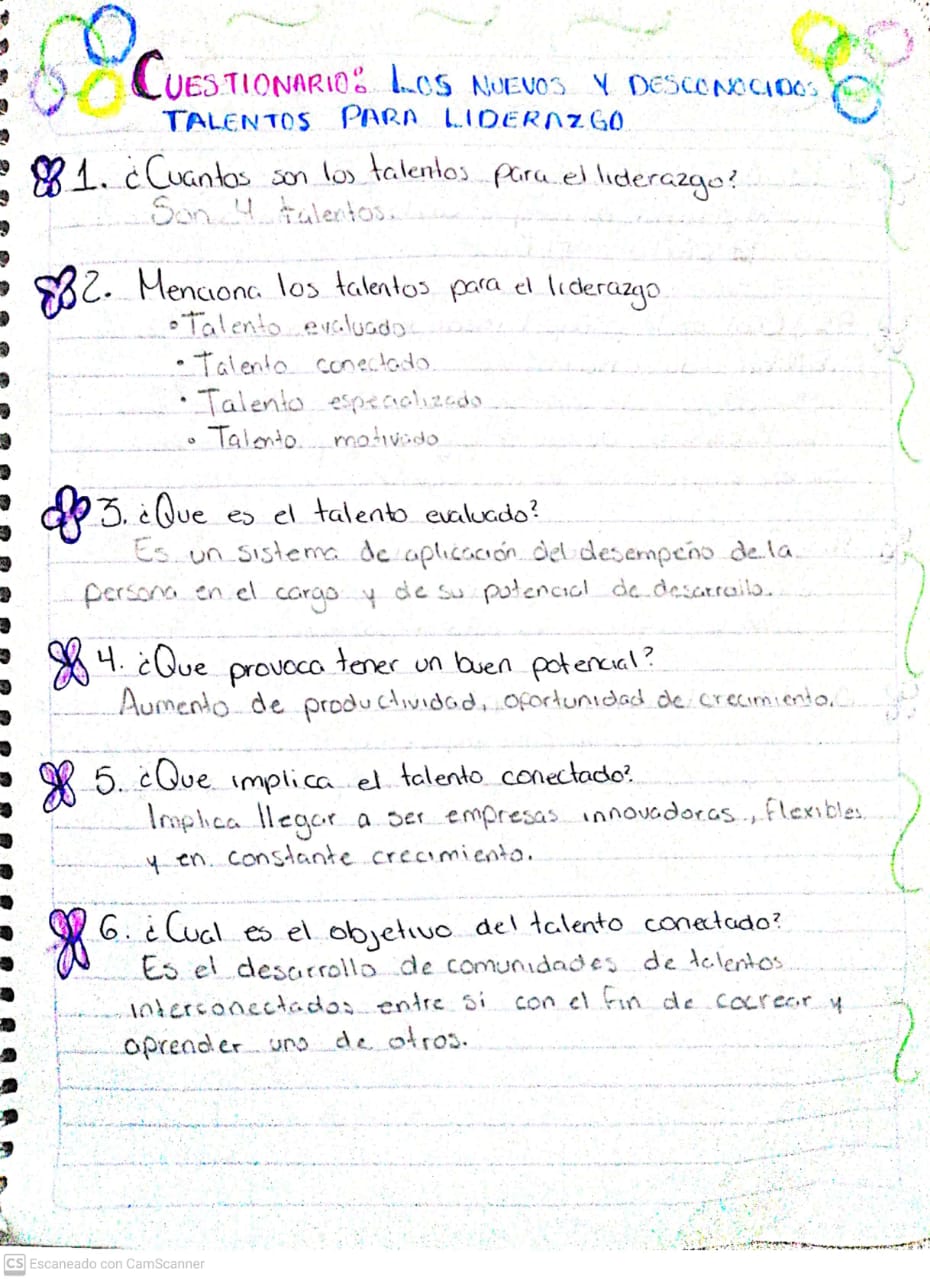 CUESTIONARIO: LOS NUEVOS Y DESCONOCIDOS
TALENTOS PARA LIDERAZGO
1. ¿Cuantos son los talentos para el liderazgo?
Son 4 talentos.
2. Menciona los talentos para el liderazgo
• Talento evaluado
• Talento conectado
• Talento especializado
• Talento motivado
3. ¿Que es el talento evaluado?
Es un sistema de aplicación del desempeño de la
persona en el cargo y de su potencial de desarrollo.
4. ¿Que provoca tener un buen potencial?
Aumento de productividad, oportunidad de crecimiento.
5. ¿Que implica el talento conectado?
Implica llegar a ser empresas innovadoras, flexibles
y en constante crecimiento.
6. ¿Cual es el objetivo del talento conectado?
Es el desarrollo de comunidades de talentos
interconectados entre sí con el fin de cocrear y
aprender uno de otros.
CS Escaneado con CamScanner